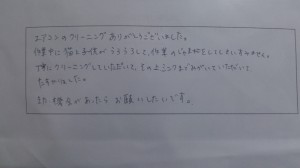 エアコンのクリーニングありがとうございました。
作業中に猫と子供がうろうろして、作業のじゃまをしてしまいすみません。
丁寧にクリーニングしていただいて、その上シンクまでみがいていただいて
たすかりました。
また機会があったらお願いしたいです。